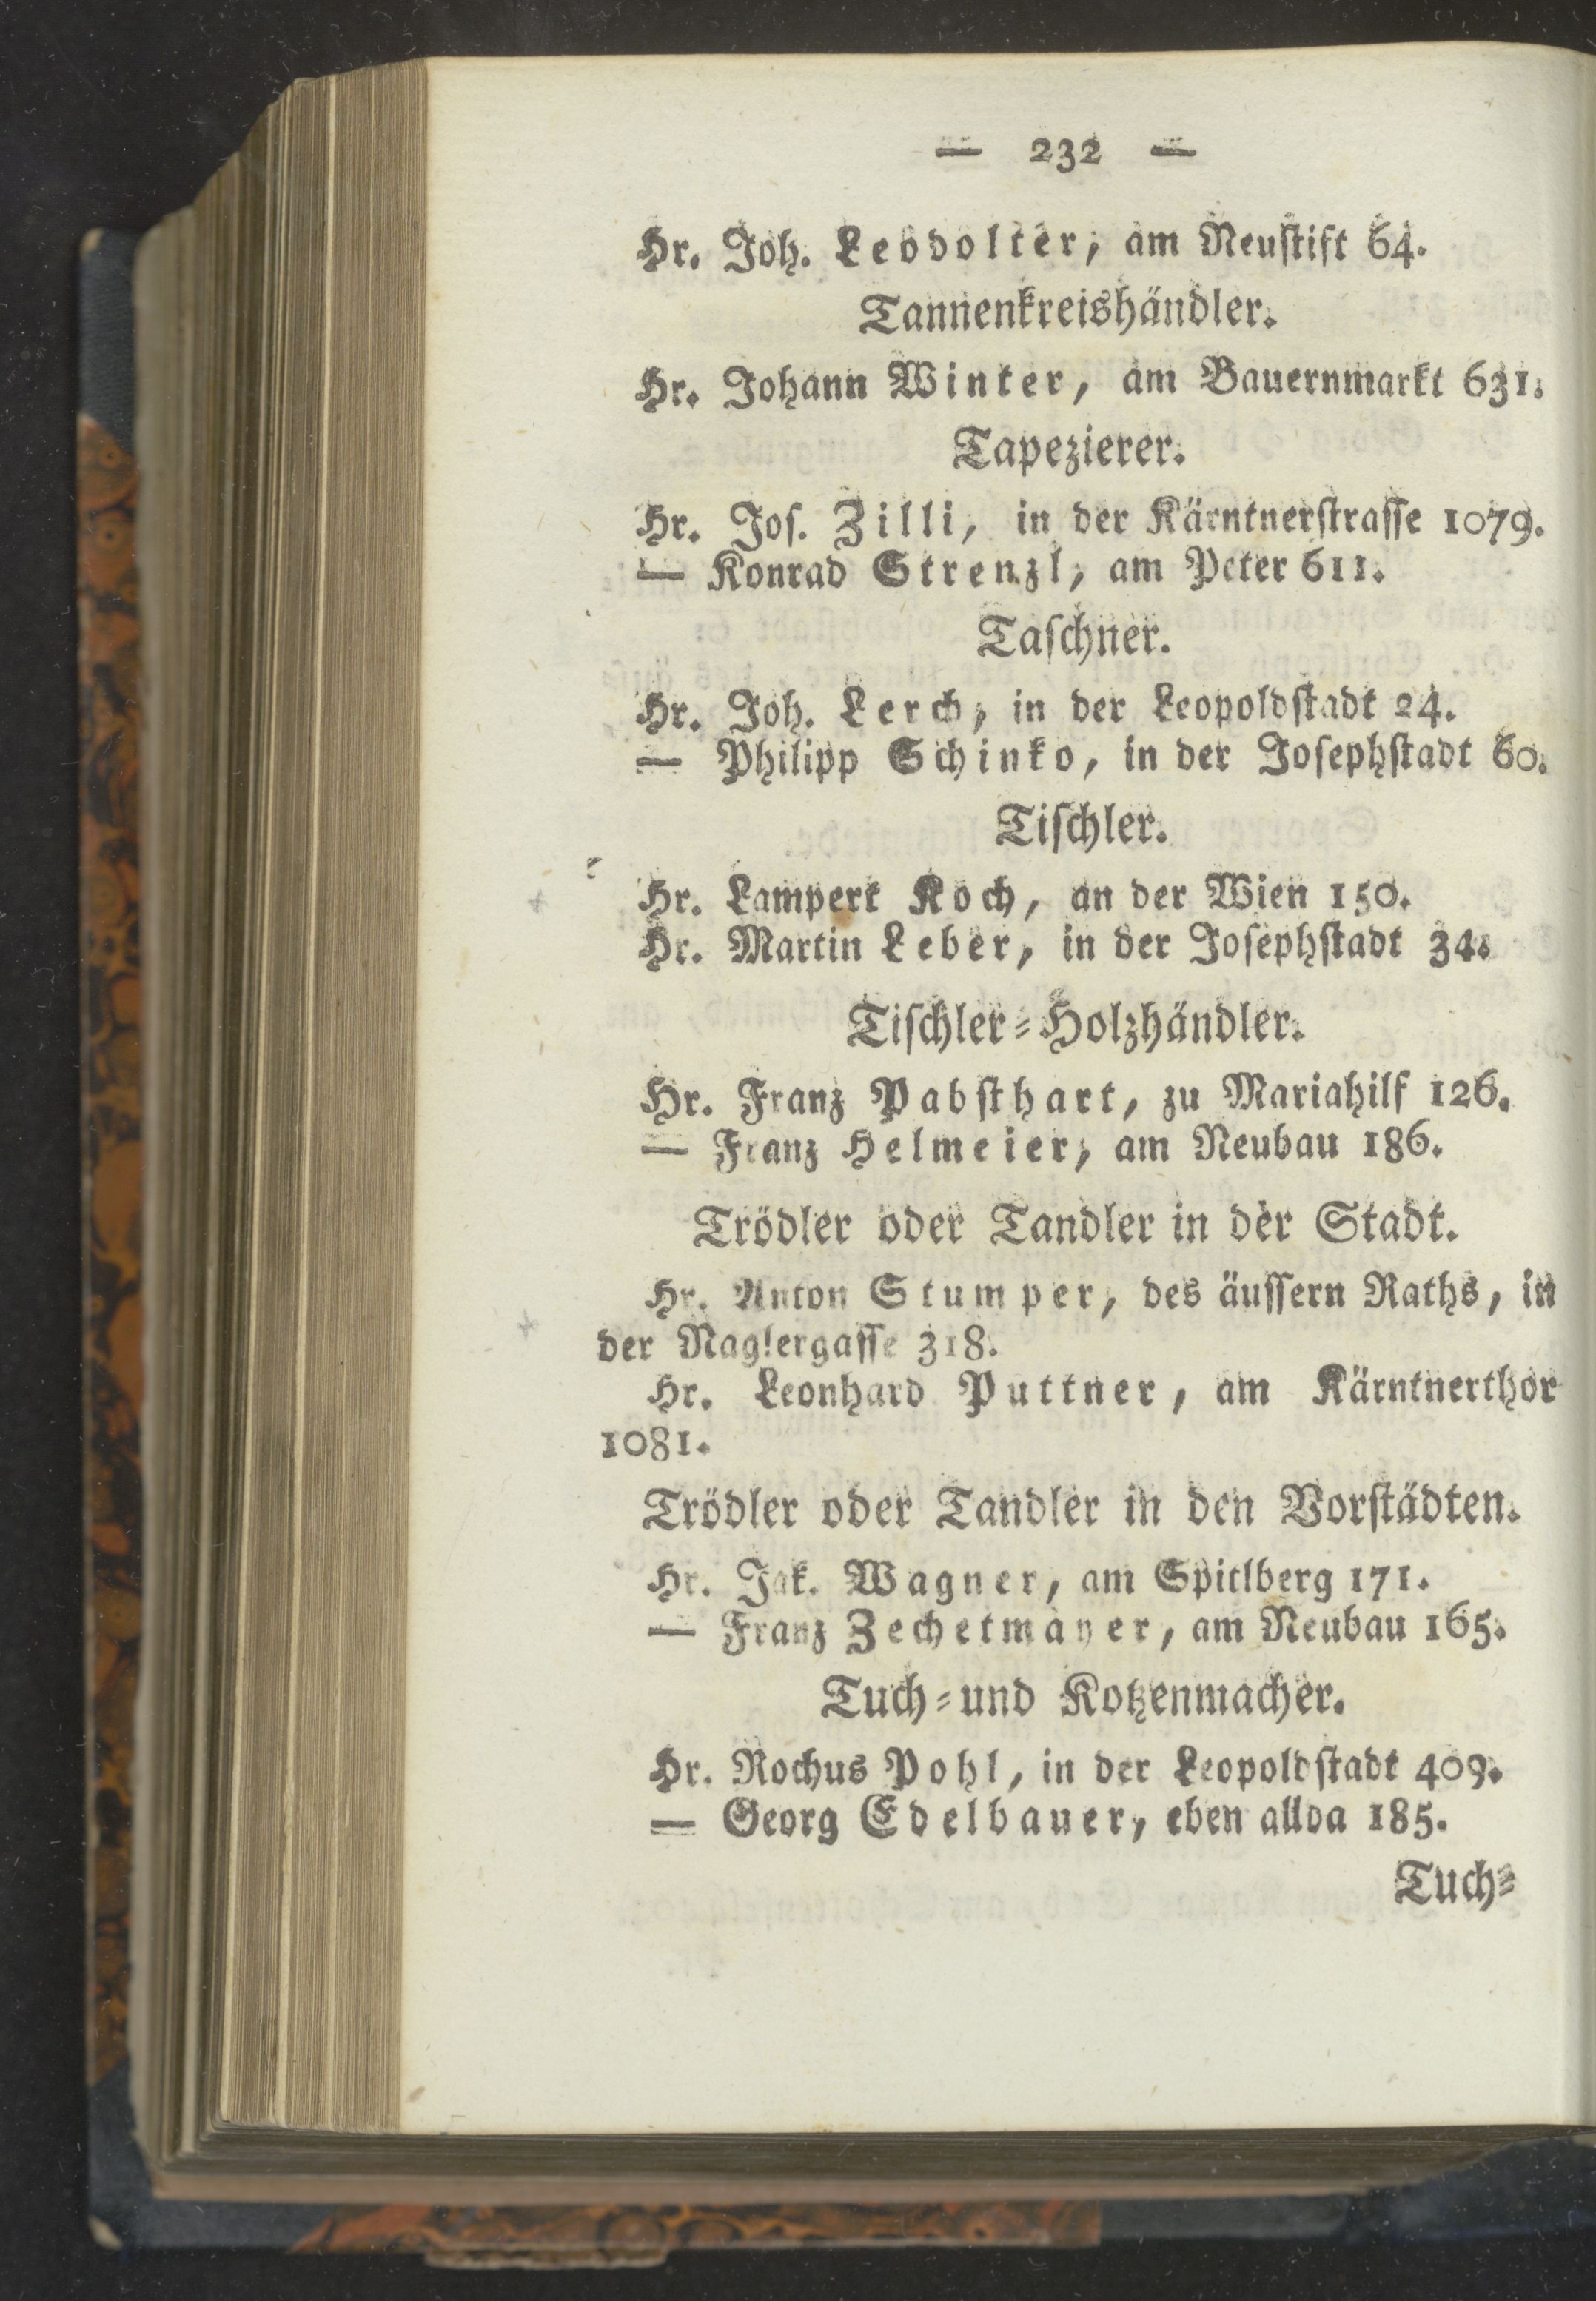 — 232 —
Hr. Joh. Leodolter, am Neustift 64.
Tannenkreishändler.
Hr. Johann Winter, am Bauernmarkt 631.
Tapezierer.
Hr. Jos. Zilli, in der Kärntnerstrasse 1079.
— Konrad Strenzl, am Peter 611.
Taschner.
Hr. Joh. Lerch, in der Leopoldstadt 24.
— Philipp Schinko, in der Josephstadt 60.
Tischler.
Hr. Lampert Koch, an der Wien 150.
Hr. Martin Leber, in der Josephstadt 34.
Tischler-Holzhändler.
Hr. Franz Pabsthart, zu Mariahilf 126.
— Franz Helmeier, am Neubau 186.
Trödler oder Tandler in der Stadt.
Hr. Anton Stumper, des äussern Raths, in
der Naglergasse 318.
Hr. Leonhard Puttner, am Kärntnerthor
1081.
Trödler oder Tandler in den Vorstädten.
Hr. Jak. Wagner, am Spitlberg 171.
— Franz Zechetmayer, am Neubau 165.
Tuch-und Kotzenmacher.
Hr. Rochus Pohl, in der Leopoldstadt 409.
— Georg Edelbauer, eben allda 185.
Tuch-